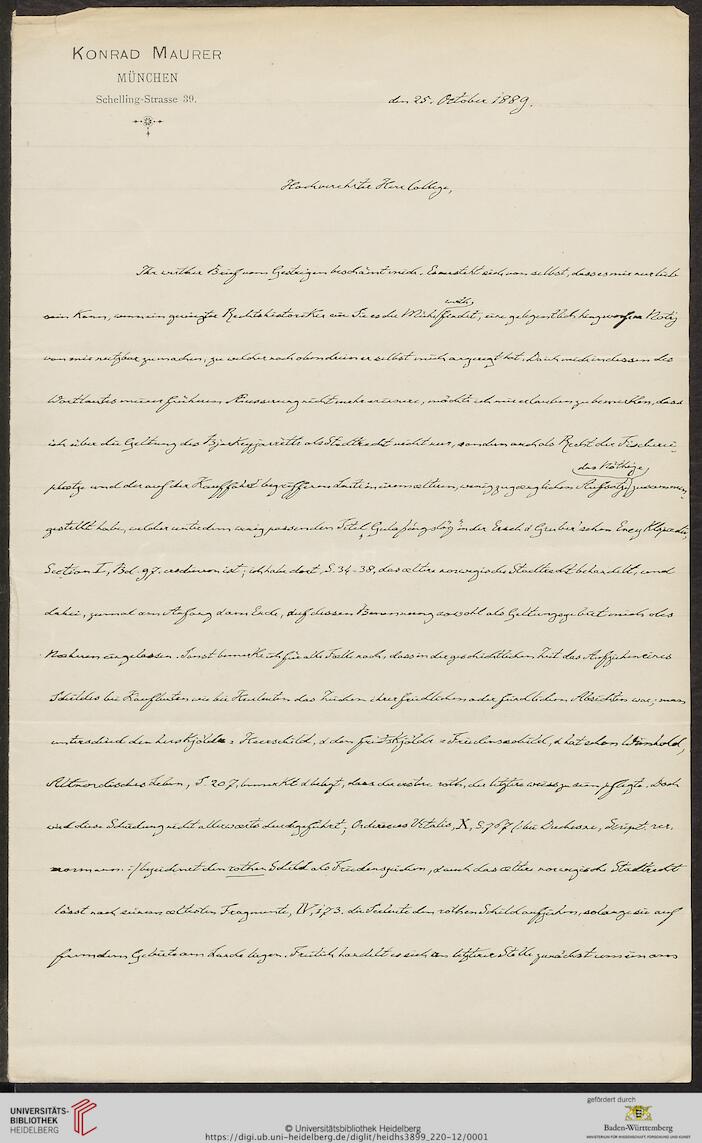 KONRAD MAURER
MÜNCHEN
Schelling-Strasse 39.
den 25. October 1889.
Hochverehrter Herr College,
Ihr werther Brief vom Gestrigen beschämt mich. Es versteht sich von selbst, dass es mir nur lieb
sein kann, wenn ein gewiegter Rechtshistoriker wie Sie es der Mühe werth findet, eine gelegentlich hingeworfene Notiz
von mir nutzbar zu machen, zu welcher noch obendrein er selbst mich angeregt hat. Da ich mich indessen des
Wortlautes meiner früheren Äusserung nicht mehr erinnere, möchte ich mir erlauben zu bemerken, dass
ich über die Geltung des Bjarkeyjarrètts als Stadtrecht nicht nur, sondern auch als Recht der Fischerei-
plætze und der auf der Kauffahrt begriffenen Leute in einem ælteren, wenig zugænglichen Aufsatze das Nöthige zusammen-
gestellt habe, welcher unter dem wenig passenden Titel „Gulaþíngslög" in der Ersch & Gruber'schen Encyklopædie,
Section I, Bd. 97. erschienen ist; ich habe dort, S. 34-38, das æltere norwegische Stadtrecht behandelt, und
dabei, zumal am Anfang & am Ende, auf dessen Benennung sowohl als Geltungsgebiet mich des
Næheren eingelassen. Sonst bemerke ich für alle Fælle noch, dass in der geschichtlichen Zeit das Aufziehen eines
Schildes bei Kaufleuten wie bei Heerleuten das Zeichen ihrer friedlichen oder feindlichen Absichten war; man
unterschied den herskjöldr = Heerschild, & den friðskjöldr = Friedensschild, & hat schon Weinhold,
Altnordisches Leben, S. 207, bemerkt & belegt, dass der erstere roth, der letztere weiss zu sein pflegte. Doch
wird diese Scheidung nicht allerwærts durchgeführt; Ordericus Vitalis, X, S. 767 (bei Duchesne, Script. rer.
normann.) bezeichnet den rothen Schild als Friedenszeichen, & auch das æltere norwegische Stadtrecht
lässt nach seinem æltesten Fragmente, IV, 173. die Seeleute den rothen Schild aufziehen, solange sie auf
fremdem Gebiete am Lande liegen. Freilich handelt es sich an letzterer Stelle zunächst um ein aus
UNIVERSITÄTS-
BIBLIOTHEK
HEIDELBERG
© Universitätsbibliothek Heidelberg
https://digi.ub.uni-heidelberg.de/diglit/heidhs3899_220-12/0001
gefördert durch
Baden-Württemberg
MINISTERIUM FÜR WISSENSCHAFT, FORSCHUNG UND KUNST